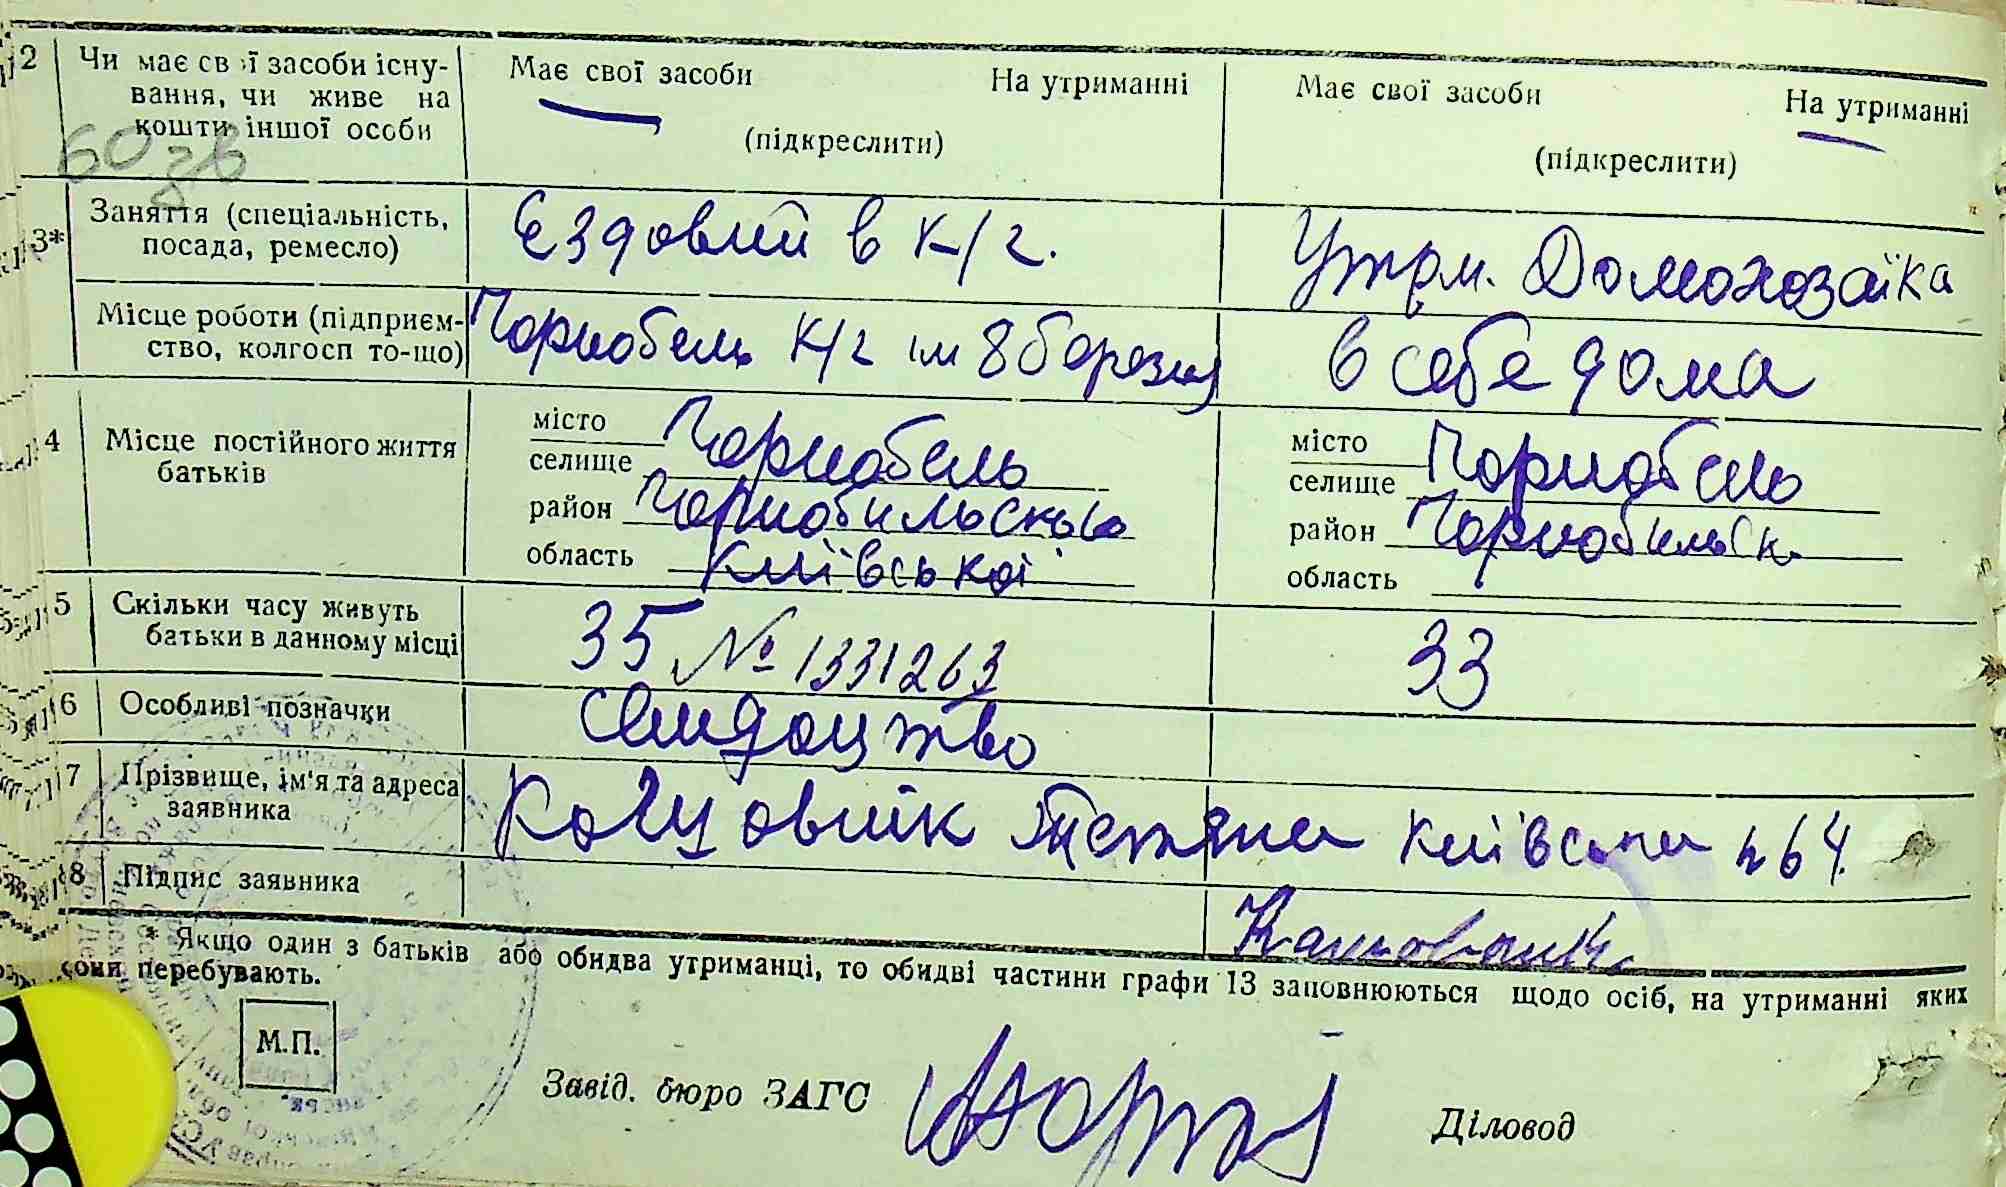 12 Чи має свої засоби існу- Має свої засоби На утриманні Має свої засоби На утриманні
вання, чи живе на
кошти іншої особи (підкреслити) (підкреслити)
60
13* Заняття (спеціальність, Єздовий в к/г. Утрм. Домохозаїка
посада, ремесло)
Місце роботи (підприєм- Чорнобель к/г ім 8 березня в себе дома
ство, колгосп то-що)
14 Місце постійного життя місто Чорнобель місто Чорнобель
батьків селище селище
район Чорнобильского район Чорнобильск.
область Київської область
15 Скільки часу живуть 35 33
батьки в данному місці № 1331263
16 Особливі позначки Свидоцтво
17 Прізвище, ім'я та адреса Татяна Київська № 64.
заявника
18 Підпис заявника
* Якщо один з батьків або обидва утриманці, то обидві частини графи 13 заповнюються щодо осіб, на утриманні яких
вони перебувають.
М.П.
Завід. бюро ЗАГС Діловод